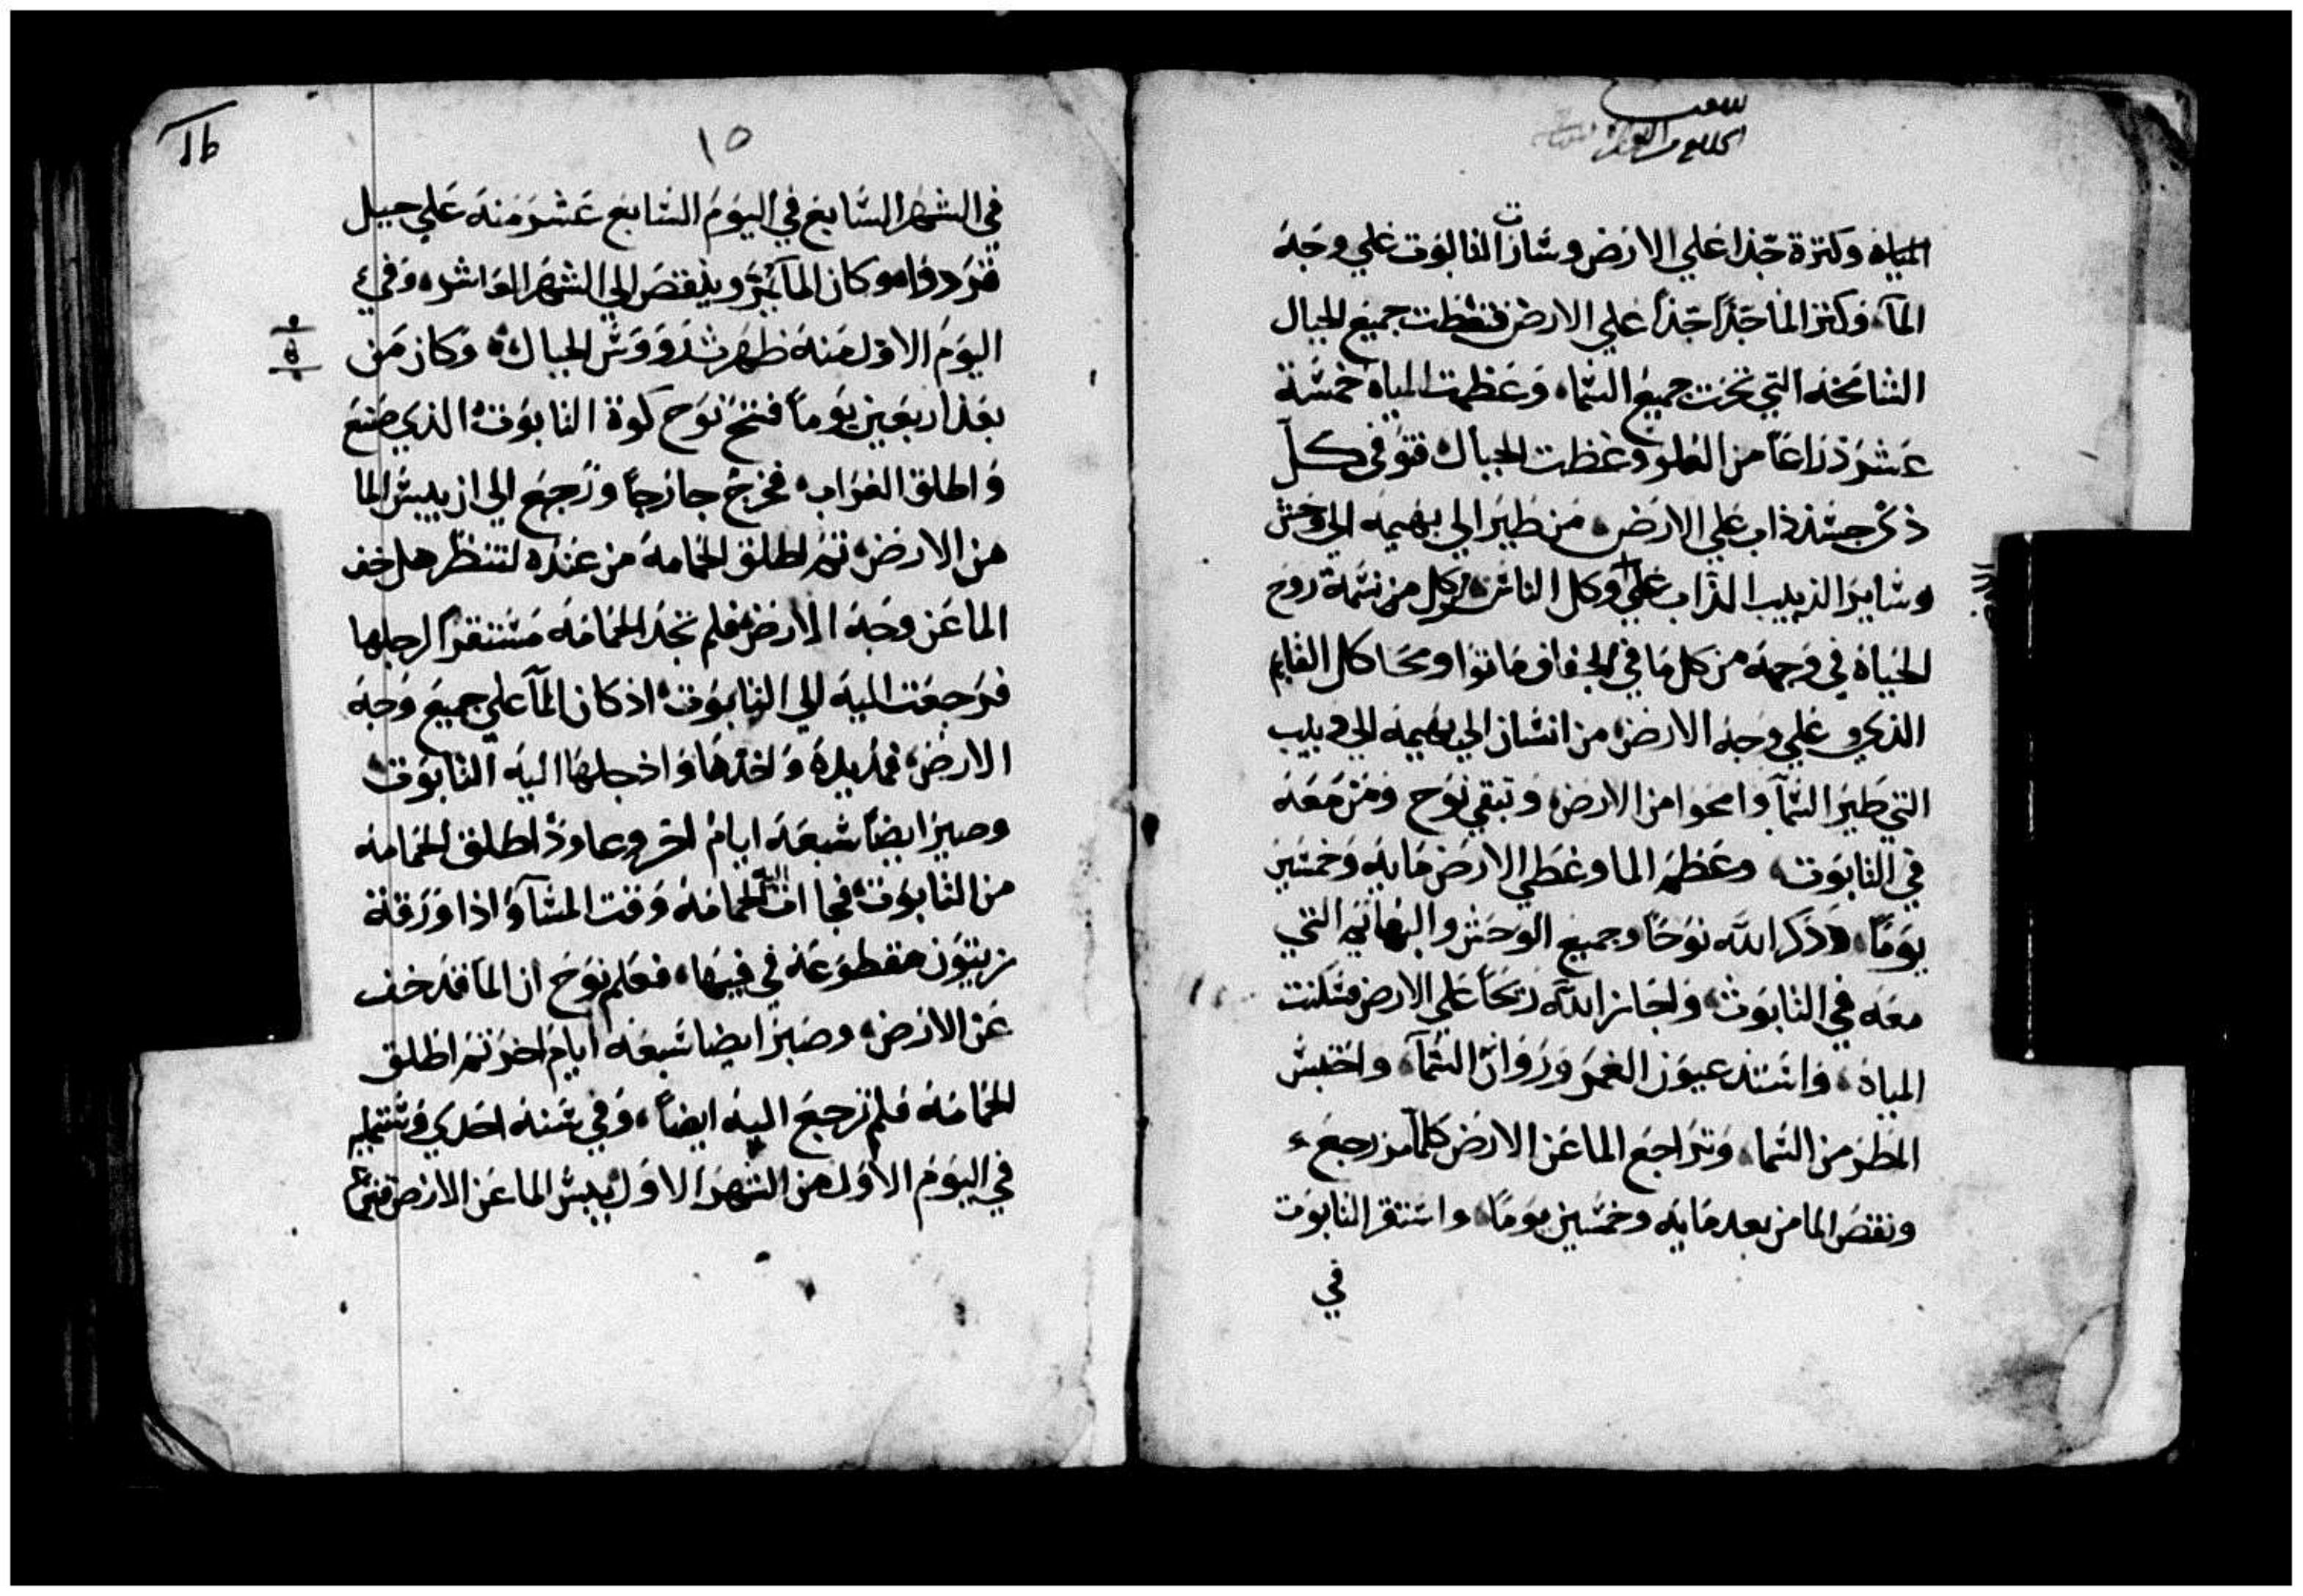 المياه وكثرة جدا علي الارض وسارت التابوت علي وجه
المآ، وكثر الما جداً جداً علي الارض فتغطت جميع الجبال
الشامخه التي تحت جميع السما، وعظمت المياه خمسة
عشر ذراعاً من العلو وغطت الجبال، فتوفى كل
ذكر جسد ذاب علي الارض، من طير الي بهيمه الي وحش
وساير الدبيب الذاب علي وكل الناس، وكل من نسمة روح
الحياة في وجهه من كل ما في الجفاف ماتوا ومحا كل القايم
الذي علي وجه الارض، من انسان الي بهيمه الي دبيب
التي طير السمآ وامحوا من الارض، وتبقي نوح ومن معه
في التابوت، وعظم الما وغطي الارض مايه وخمسين
يوماً، وذكر الله نوحاً وجميع الوحش والبهايم التي
معه في التابوت، واجاز الله ريحاً علي الارض فسكنت
المياه، واستد عيون الغمر ورواق السمآ، واحتبس
المطر من السما، وتراجع الما عن الارض كلما مر رجع
ونقص الما من بعد مايه وخمسين يوماً، واستقر التابوت
في
١٥
16
في الشهر السابع في اليوم السابع عشر منه علي جبل
قردوا، وكان المآ يمر وينقص الي الشهر العاشر، وفي
اليوم الاول منه ظهر رووس الجبال، وكان من
بعد اربعين يوماً فتح نوح كوة التابوت الذي صنع
واطلق الغراب، فخرج خارجاً ورجع الي ان يبس الما
من الارض، ثم اطلق الحمامه من عنده لتنظر هل خف
الما عن وجه الارض، فلم تجد الحمامه مستقراً لرجلها
فرجعت اليه الي التابوت، اذ كان المآ علي جميع وجه
الارض، فمد يده واخذها وادخلها اليه التابوت
وصبر ايضاً سبعة ايام اخر وعاود اطلق الحمامه
من التابوت، فجات اليه الحمامه وقت المسآ واذا ورقة
زيتون مقطوعه في فيها، فعلم نوح ان الما قد خف
عن الارض، وصبر ايضا سبعه ايام اخر ثم اطلق
الحمامه فلم ترجع اليه ايضاً، وفي سنة احدي وستمايه
في اليوم الاول من الشهر الاول يبس الما عن الارض